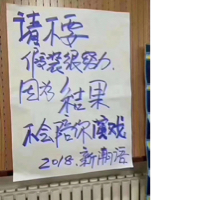 请不要
假装很努力.
因为结果
不会陪你演戏
2018.新南语